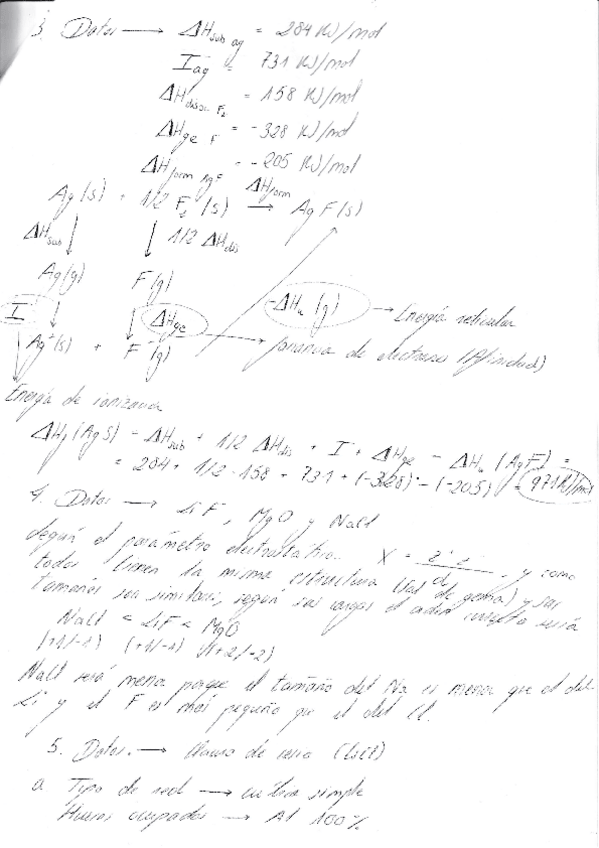 3. Datos → ΔHsub ag = 284 KJ/mol
Iag = 731 KJ/mol
ΔHdisoc F2 = 158 KJ/mol
ΔHge F = -328 KJ/mol
ΔHform AgF = -205 KJ/mol
Ag(s) + 1/2 F2 (s) → ΔHform AgF(s)
ΔHsub ↓ ↓ 1/2 ΔHdis
Ag(g) F(g)
I ↓ ↓ ΔHge -ΔHu (g) → Energía reticular
Ag+(s) + F-(g) → ganancia de electrones (Afinidad)
Energía de ionización
ΔHf (AgS) = ΔHsub + 1/2 ΔHdis + I + ΔHge - ΔHu (AgF) =
= 284 + 1/2 · 158 + 731 + (-328) - (-205) = 971 KJ/mol
4. Datos → LiF, MgO y NaCl
Según el parámetro electrostático X = z+ z- / d, y como
todos tienen la misma estructura (sal de gema) y sus
tamaños son similares, según sus cargas el orden será
NaCl < LiF < MgO
(+1/-1) (+1/-1) (+2/-2)
NaCl será menor porque el tamaño del Na es menor que el del
Li y el F es más pequeño que el del Cl.
5. Datos. → (CsCl)
a. Tipo de red → cúbica simple
Huecos ocupados → Al 100%